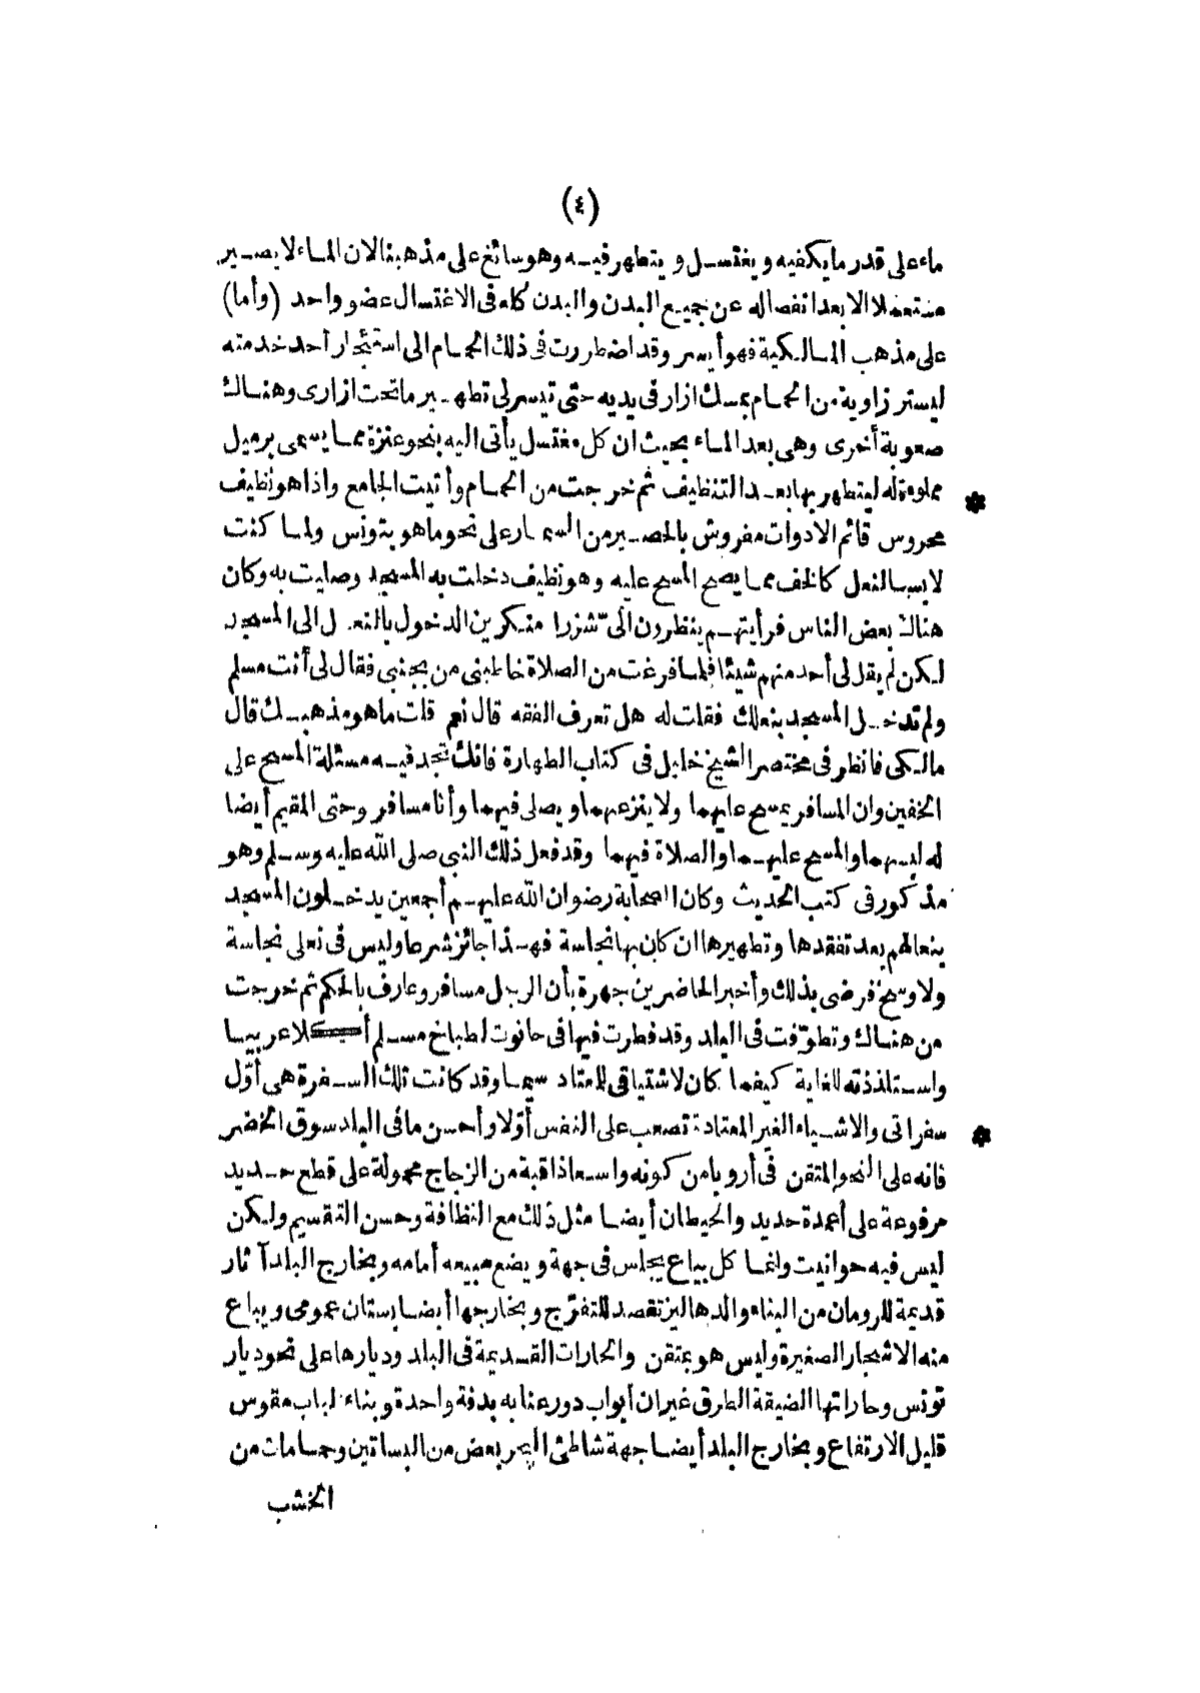 (٤)
ماء على قدر ما يكفيه ويغتسل ويتطهر فيه وهو سائغ على مذهبنا لان الماء لا يصير
مستعملا الا بعد انفصاله عن جميع البدن والبدن كله فى الاغتسال عضو واحد (وأما)
على مذهب المالكية فهو أيسر وقد اضطررت فى ذلك الحمام الى استئجار أحد خدمته
ليستر زاوية من الحمام بمسك ازار فى يديه حتى تيسر لى تطهير ما تحت ازارى وهناك
صعوبة أخرى وهى بعد الماء بحيث ان كل مغتسل يأتى اليه بنحو عنزة مما يسمى برميل
مملوءة له ليتطهر بها بعد التنظيف ثم خرجت من الحمام وأتيت الجامع واذا هو نظيف *
محروس قائم الادوات مفروش بالحصير من السمار على نحو ما هو بتونس ولما كنت
لابسا لنعل كالخف مما يصح المسح عليه وهو نظيف دخلت به المسجد وصليت به وكان
هناك بعض الناس فرأيتهم ينظرون الىّ شزرا منكرين الدخول بالنعل الى المسجد
لكن لم يقل لى أحد منهم شيئا فلما فرغت من الصلاة خاطبنى من بجنبى فقال لى أنت مسلم
ولم تدخل المسجد بنعلك فقلت له هل تعرف الفقه قال نعم قلت ما هو مذهبك قال
مالكى فانظر فى مختصر الشيخ خليل فى كتاب الطهارة فانك تجد فيه مسئلة المسح على
الخفين وان المسافر يمسح عليهما ولا ينزعهما ويصلى فيهما وأنا مسافر وحتى المقيم أيضا
له لبسهما والمسح عليهما والصلاة فيهما وقد فعل ذلك النبى صلى الله عليه وسلم وهو
مذكور فى كتب الحديث وكان الصحابة رضوان الله عليهم أجمعين يدخلون المسجد
بنعالهم بعد تفقدها وتطهيرها ان كان بها نجاسة فهذا جائز شرعا وليس فى نعلى نجاسة
ولا وسخ فرضى بذلك وأخبر الحاضرين جهرة بأن الرجل مسافر وعارف بالحكم ثم خرجت
من هناك وتطوّفت فى البلد وقد فطرت فيها فى حانوت لطباخ مسلم أكلا عربيا
واستلذذته للغاية كيفما كان لاشتياقى للمعتاد سيما وقد كانت تلك السفرة هى أوّل
سفراتى والاشياء الغير المعتادة تصعب على النفس أوّلا وأحسن ما فى البلد سوق الخضر *
فانه على النحو المتقن فى أروبا من كونه واسعا ذا قبة من الزجاج محمولة على قطع حديد
مرفوعة على أعمدة حديد والحيطان أيضا مثل ذلك مع النظافة وحسن التقسيم ولكن
ليس فيه حوانيت وانما كل بياع يجلس فى جهة ويضع مبيعه أمامه وبخارج البلد آثار
قديمة للرومان من البناء والدهاليز تقصد للتفرّج وبخارجها أيضا بستان عمومى ويباع
منه الاشجار الصغيرة وليس هو بمتقن والحارات القديمة فى البلد وديارها على نحو ديار
تونس وحاراتها الضيقة الطرق غير ان أبواب دور عنابه بدفة واحدة وبناء الباب مقوس
قليل الارتفاع وبخارج البلد أيضا جهة شاطئ البحر بعض من البساتين وحمامات من
الخشب